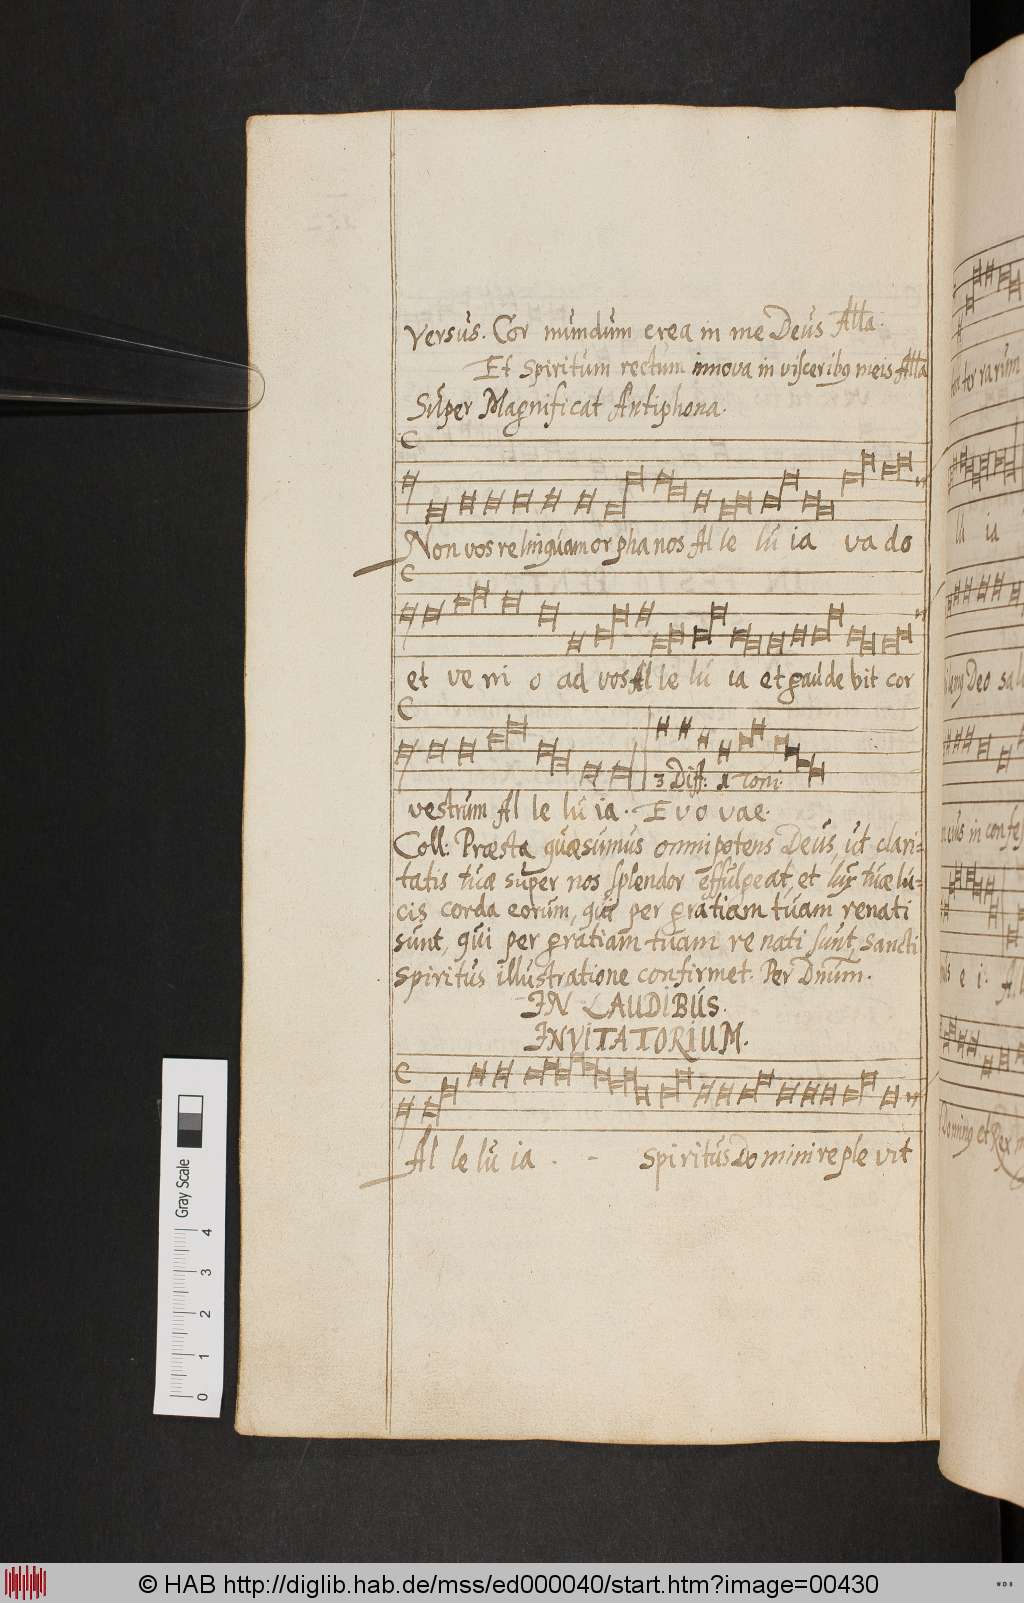 Versus. Cor mundum crea in me Deus Alla.
Et spiritum rectum innova in visceribꝰ meis Alla
Super Magnificat Antiphona.
Non vos relinquam orphanos Al le lu ia va do
et ve ni o ad vos Al le lu ia et gaude bit cor
3 Diff. 1 Toni.
vestrum Al le lu ia. E v o v a e.
Coll: Præsta quæsumus omnipotens Deus, ut clari=
tatis tuæ super nos splendor effulgeat, et lux tuæ lu=
cis corda eorum, qui per gratiam tuam renati
sunt, qui per gratiam tuam re nati sunt, sancti
spiritus illustratione confirmet. Per Dnum.
IN LAUDIBUS.
INVITATORIUM.
Al le lu ia . - Spiritus Domini reple vit
ter rarum
lu ia
Deo sal
eius in confes
us e i. Al
Dominꝰ et Rex
Gray Scale
0 1 2 3 4
© HAB http://diglib.hab.de/mss/ed000040/start.htm?image=00430